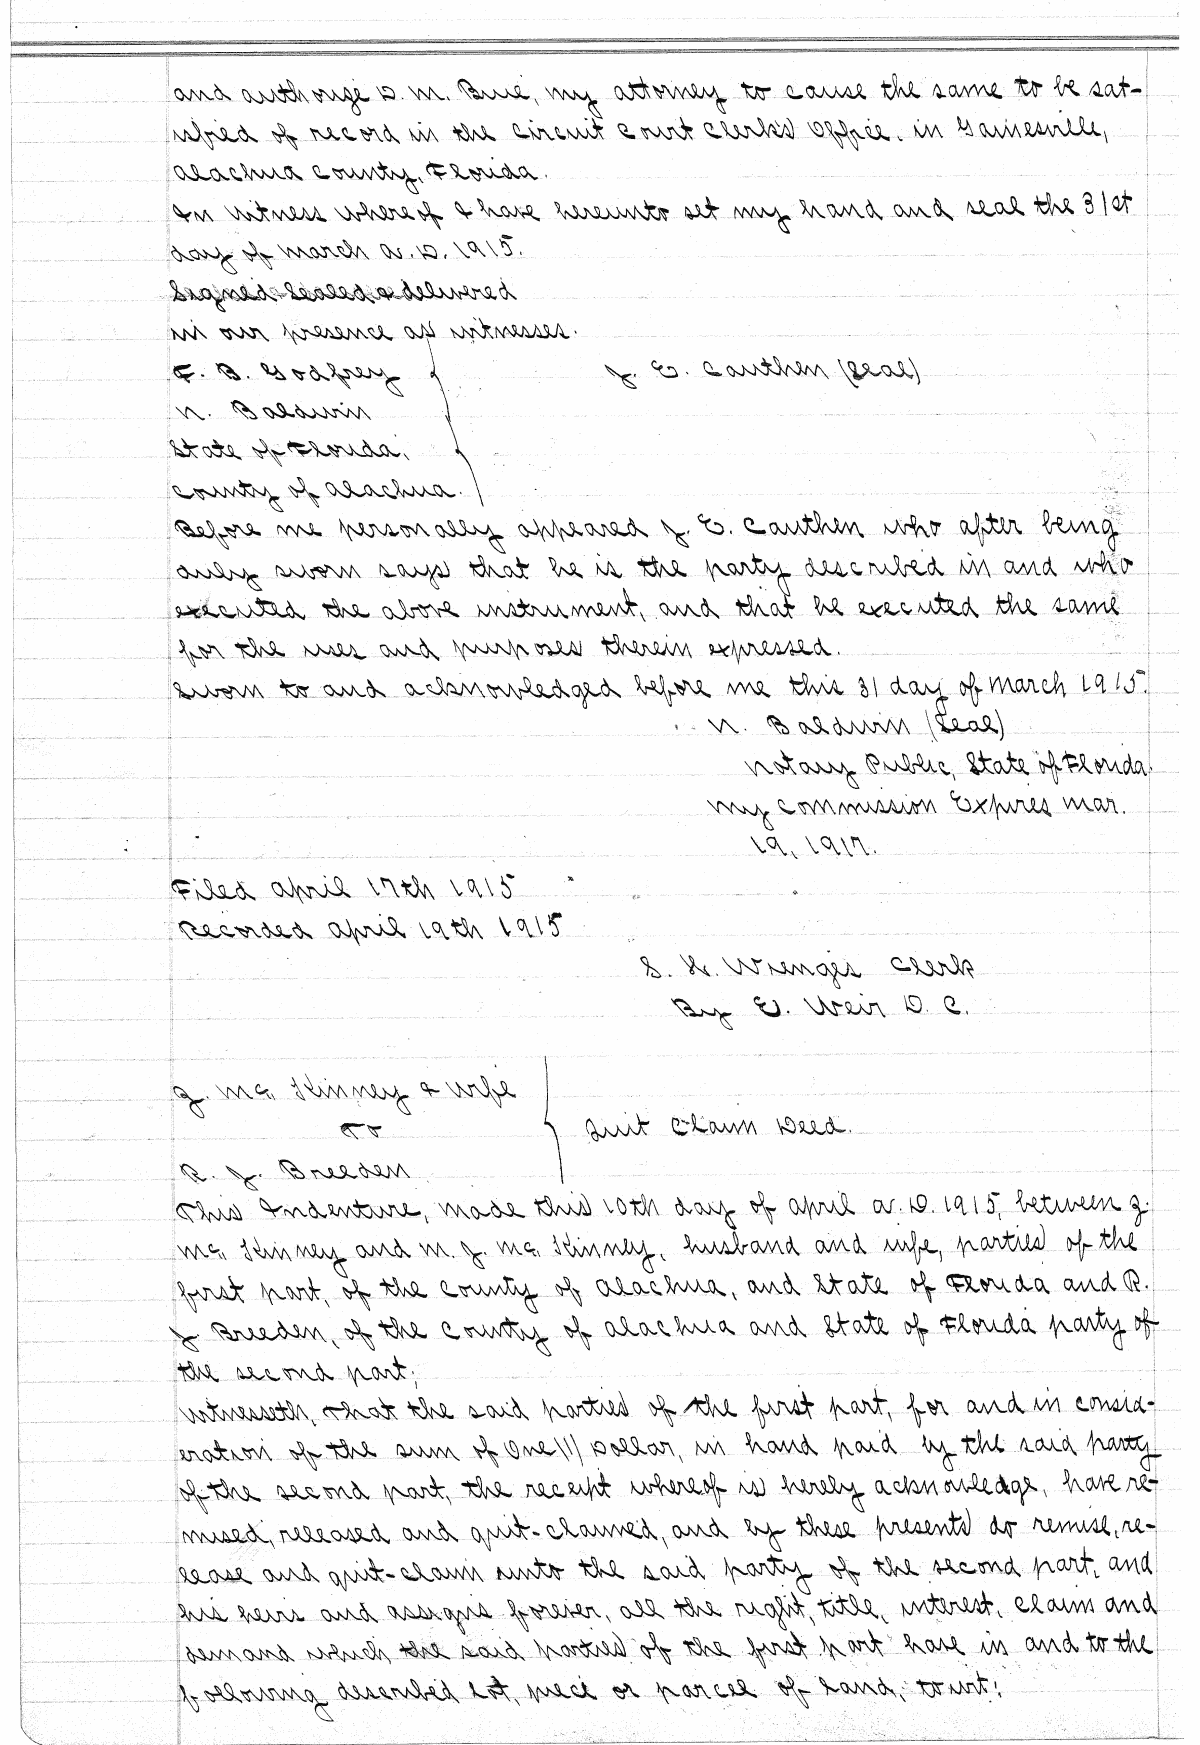 and authorize D. M. Blue, my attorney to cause the same to be sat-
isfied of record in the Circuit Court Clerk's Office. in Gainesville,
Alachua County, Florida.
In Witness whereof I have hereunto set my hand and seal the 31st
day of March A. D. 1915.
Signed Sealed & delivered
in our presence as witnesses.
F. B. Godfrey J. E. Cauthen (Seal)
N. Baldwin
State of Florida,
County of Alachua.
Before me personally appeared J. E. Cauthen who after being
duly sworn says that he is the party described in and who
executed the above instrument, and that he executed the same
for the uses and purposes therein expressed.
Sworn to and acknowledged before me this 31 day of March 1915.
N. Baldwin (Seal)
Notary Public, State of Florida
My Commission Expires Mar.
19, 1917.
Filed April 17th 1915
Recorded April 19th 1915
S. H. Wienges Clerk
By E. Weir D. C.
Z. Mc Kinney & Wife
To Quit Claim Deed.
R. J. Breeden
This Indenture, made this 10th day of April A. D. 1915, between Z.
Mc Kinney and M. J. Mc Kinney, husband and wife, parties of the
first part, of the County of Alachua, and State of Florida and R.
J Breeden, of the County of Alachua and State of Florida party of
the second part;
Witnesseth, That the said parties of the first part, for and in consid-
eration of the sum of One (1) Dollar, in hand paid by the said party
of the second part, the receipt whereof is hereby acknowledge, have re-
mised, released and quit-claimed, and by these presents do remise, re-
lease and quit-claim unto the said party of the second part, and
his heirs and assigns forever, all the right, title, interest, claim and
demand which the said parties of the first part have in and to the
following described Lot, piece or parcel of Land, towit;